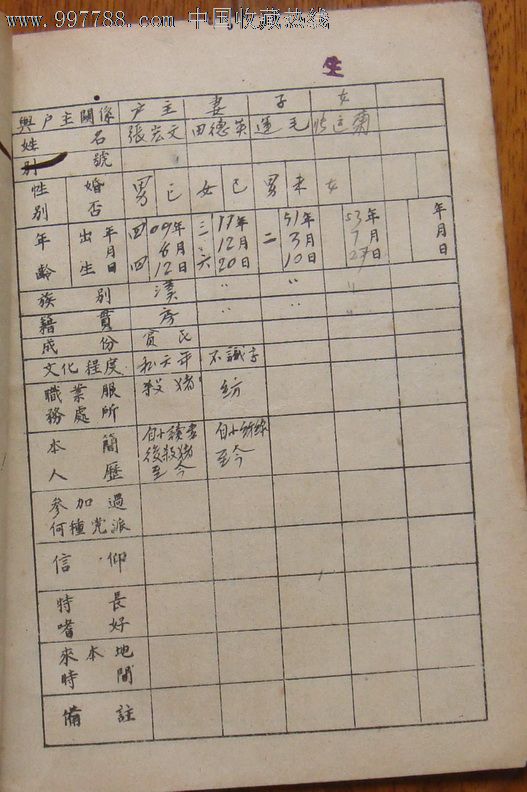 www.997788.com 中国收藏热线
生
與户主關係 户主 妻 子 女
姓名 張宏文 田德英 運毛
別號
性別 婚否 男 已 女 已 男 未 女
年齡 出生年月日 四四 09年6月12日 三六 17年12月20日 二 51年3月10日 53年7月27日 年月日
族別 漢 〃 〃 〃
籍貫
成份 貧民
文化程度 私六年 不識字
職業服務處所 殺猪 紡
本人簡歷 自小讀書後殺猪至今 自小紡綫至今
參加過何種党派
信仰
特長嗜好
來本地時間
備註